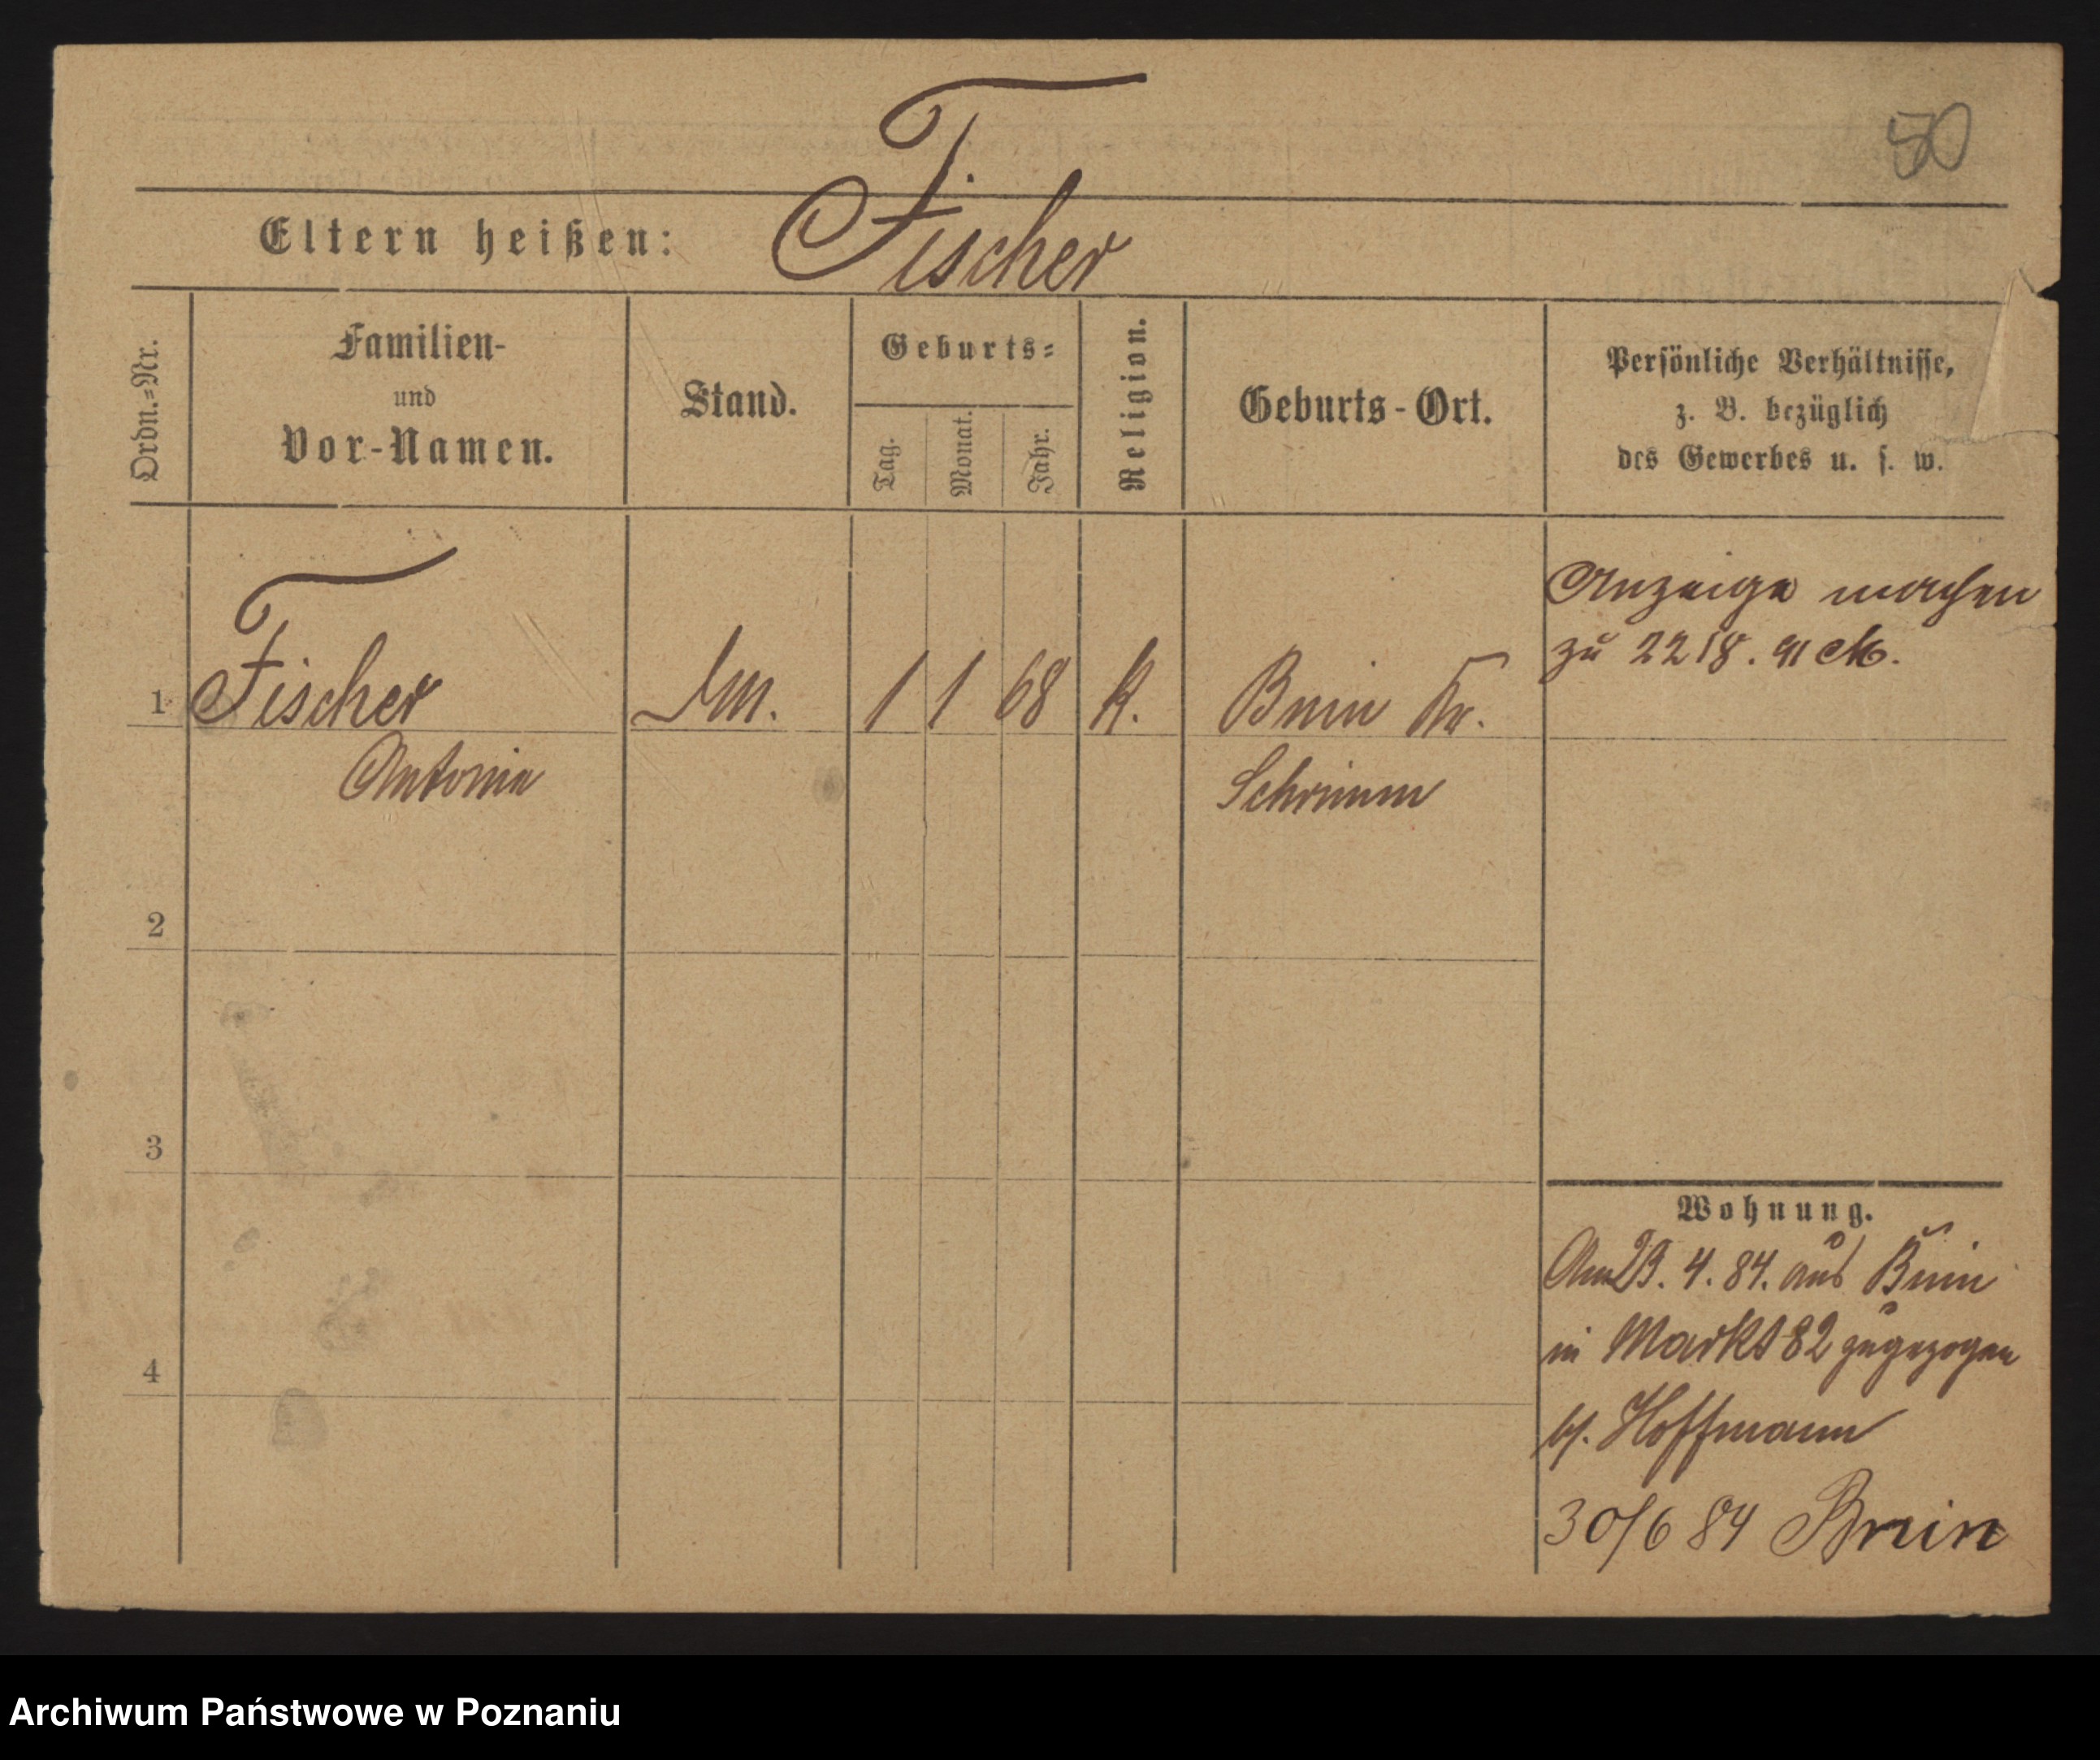 50
Fischer
Eltern heißen:
Ordn.=Nr.
Familien-
und
Vor-Namen.
Stand.
Geburts=
Tag.
Monat.
Jahr.
Religion.
Geburts-Ort.
Persönliche Verhältnisse,
z. B. bezüglich
des Gewerbes u. s. w.
Anzeige machen
zu 2218. 91
1 Fischer 1 1 68 k. Bnin Kr.
Antonie Schrimm
2
3
4
Wohnung.
Am 23. 4. 84. aus Bnin
in Markt 82 zugezogen
b/. Hoffmann
30/6 84 Bnin
Archiwum Państwowe w Poznaniu